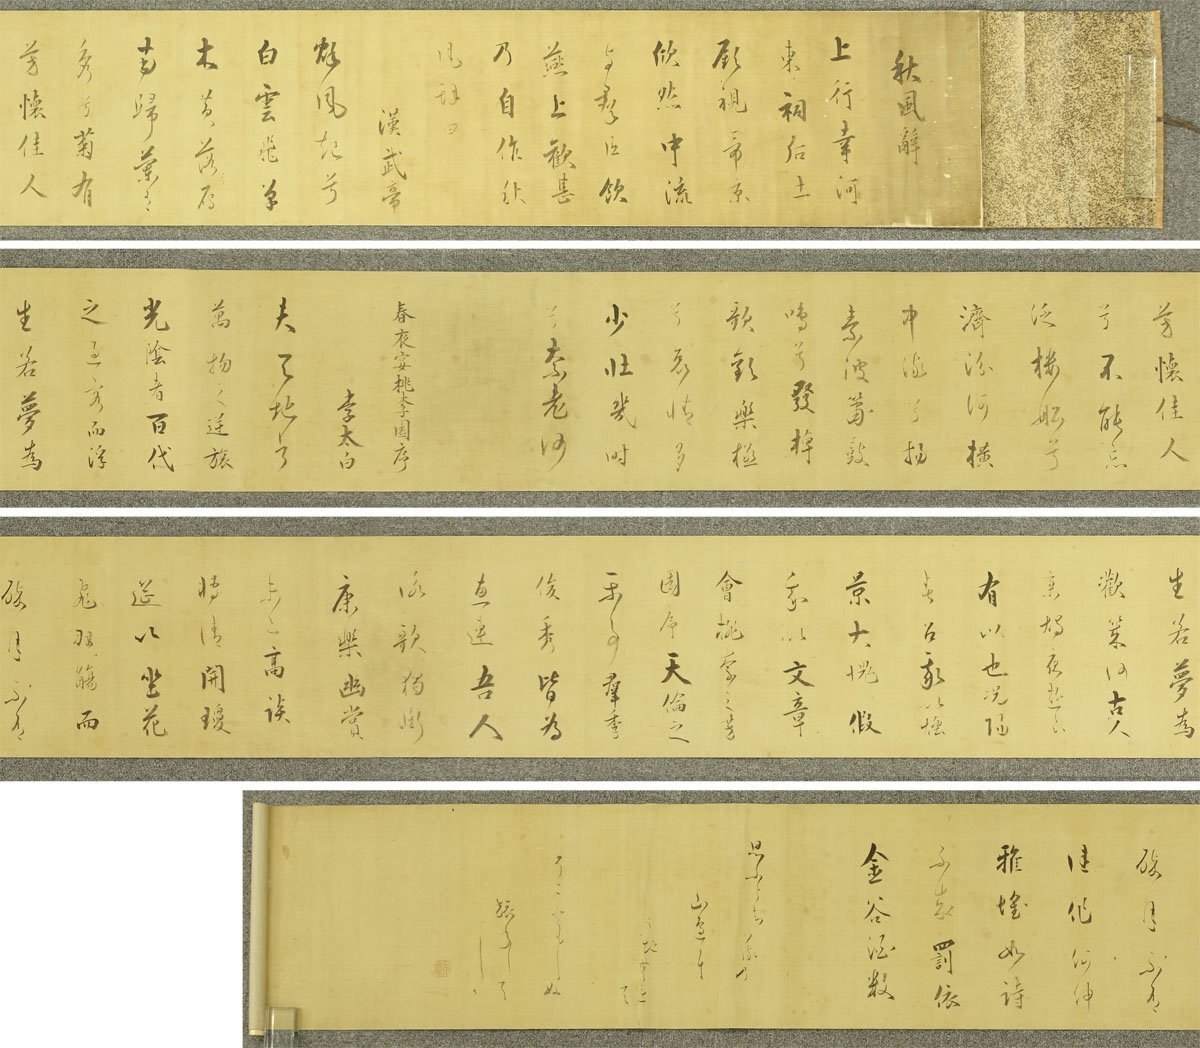 秋風辭
上行幸河
東祠后土
顧視帝京
欣然中流
与群臣飲
燕上歡甚
乃自作秋
風辞曰
漢武帝
秋風起兮
白雲飛草
木黄落雁
南歸蘭有
秀兮菊有
芳懷佳人
芳懷佳人
兮不能忘
泛楼舩兮
濟汾河横
中流兮揚
素波簫鼓
鳴兮發棹
歌歓樂極
兮哀情多
少壮幾時
兮奈老何
春夜宴桃李園序
李太白
夫天地者
萬物之逆旅
光陰者百代
之過客而浮
生若夢為
生若夢為
歡幾何古人
秉燭夜遊良
有以也况陽
春召我以煙
景大塊假
我以文章
會桃李之芳
園序天倫之
楽事群季
俊秀皆為
恵連吾人
詠歌独慚
康樂幽賞
未已高談
轉清開瓊
筵以坐花
飛羽觴而
酔月不有
酔月不有
佳作何伸
雅懐如詩
不成罰依
金谷酒数